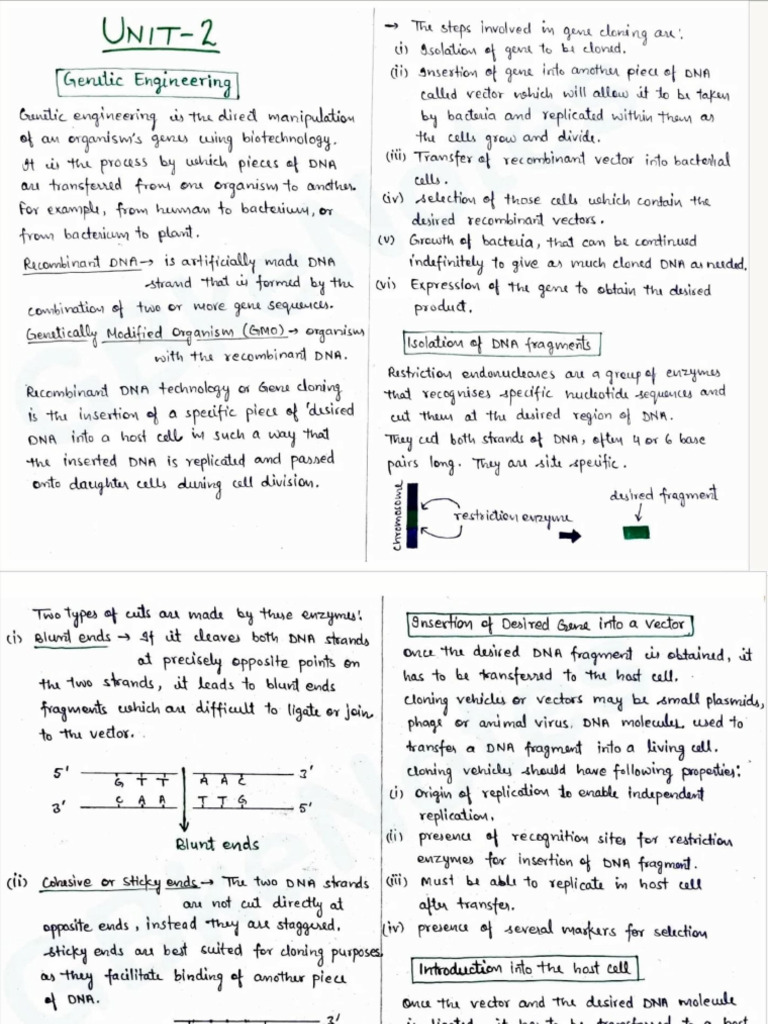 UNIT-2
Genetic Engineering
Genetic engineering is the direct manipulation
of an organism's genes using biotechnology.
It is the process by which pieces of DNA
are transferred from one organism to another.
For example, from human to bacterium, or
from bacterium to plant.
Recombinant DNA → is artificially made DNA
strand that is formed by the
combination of two or more gene sequences.
Genetically Modified Organism (GMO) → organism
with the recombinant DNA.
Recombinant DNA technology or Gene cloning
is the insertion of a specific piece of 'desired
DNA into a host cell in such a way that
the inserted DNA is replicated and passed
onto daughter cells during cell division.
→ The steps involved in gene cloning are:
(i) Isolation of gene to be cloned.
(ii) Insertion of gene into another piece of DNA
called vector which will allow it to be taken
by bacteria and replicated within them as
the cells grow and divide.
(iii) Transfer of recombinant vector into bacterial
cells.
(iv) selection of those cells which contain the
desired recombinant vectors.
(v) Growth of bacteria, that can be continued
indefinitely to give as much cloned DNA as needed.
(vi) Expression of the gene to obtain the desired
product.
Isolation of DNA fragments
Restriction endonucleases are a group of enzymes
that recognises specific nucleotide sequences and
cut them at the desired region of DNA.
They cut both strands of DNA, often 4 or 6 base
pairs long. They are site specific.
chromosome
restriction enzyme
desired fragment
Two types of cuts are made by these enzymes:
(i) Blunt ends → If it cleaves both DNA strands
at precisely opposite points on
the two strands, it leads to blunt ends
fragments which are difficult to ligate or join
to the vector.
5' G T T A A C 3'
3' C A A T T G 5'
Blunt ends
(ii) Cohesive or Sticky ends → The two DNA strands
are not cut directly at
opposite ends, instead they are staggered.
sticky ends are best suited for cloning purposes
as they facilitate binding of another piece
of DNA.
3'
Insertion of Desired Gene into a vector
Once the desired DNA fragment is obtained, it
has to be transferred to the host cell.
cloning vehicles or vectors may be small plasmids,
phage or animal virus. DNA molecules used to
transfer a DNA fragment into a living cell.
cloning vehicles should have following properties:
(i) Origin of replication to enable independent
replication.
(ii) presence of recognition sites for restriction
enzymes for insertion of DNA fragment.
(iii) Must be able to replicate in host cell
after transfer.
(iv) presence of several markers for selection
Introduction into the host cell
Once the vector and the desired DNA molecule